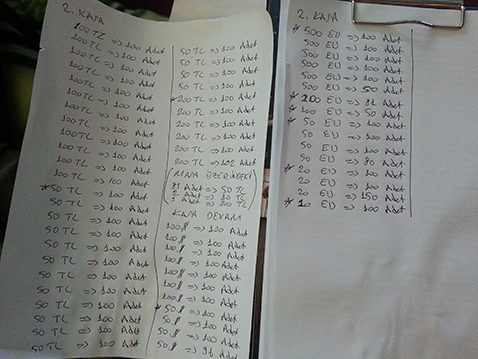 2. KASA
100 TL => 100 Adet
100 TL => 100 Adet
100 TL => 100 Adet
100 TL => 100 Adet
100 TL => 100 Adet
100 TL => 100 Adet
100 TL => 100 Adet
100 TL => 100 Adet
100 TL => 100 Adet
100 TL => 100 Adet
100 TL => 100 Adet
* 50 TL => 100 Adet
50 TL => 100 Adet
50 TL => 100 Adet
50 TL => 100 Adet
50 TL => 100 Adet
50 TL => 100 Adet
50 TL => 100 Adet
50 TL => 100 Adet
50 TL => 100 Adet
50 TL => 100 Adet
50 TL => 100 Adet
50 TL => 100 Adet
50 TL => 100 Adet
50 TL => 100 Adet
* 200 TL => 100 Adet
200 TL => 100 Adet
200 TL => 100 Adet
200 TL => 100 Adet
200 TL => 100 Adet
200 TL => 102 Adet
Adet => 50 TL
Adet => 10 TL
KASA DEVAM
100 $ => 100 Adet
100 $ => 100 Adet
100 $ => 100 Adet
100 $ => 100 Adet
100 $ => 100 Adet
100 $ => 100 Adet
* 50 $ => 100 Adet
50 $ => 100 Adet
50 $ => 100 Adet
50 $ => 96 Adet
2. KASA
* 500 EU => 100 Adet
500 EU => 100 Adet
500 EU => 100 Adet
500 EU => 100 Adet
500 EU => 100 Adet
500 EU => 50 Adet
* 200 EU => 81 Adet
* 100 EU => 50 Adet
* 50 EU => 100 Adet
50 EU => 100 Adet
50 EU => 100 Adet
50 EU => 80 Adet
* 20 EU => 100 Adet
20 EU => 100 Adet
20 EU => 150 Adet
* 10 EU => 100 Adet